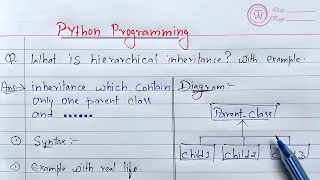 Python Programming
Q. What is hierarchical inheritance? with example.
Ans→ inheritance which contain only one parent class and ......
Diagram:-
Parent class
Child1 Child2 3
Syntax:-
Example with real life